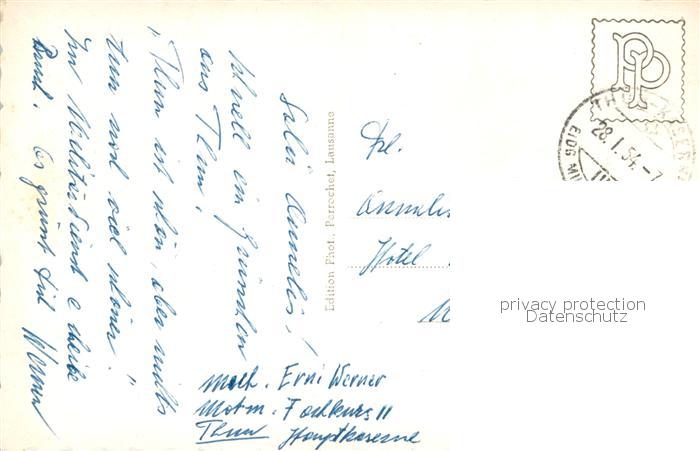 Salü Annelis!
Schnell ein Grüsschen
aus Thun!
"Thun ist schön, aber nichts
tun noch viel schöner."
Im Militärdienst e cheibe
Es grüsst Dich Werner
Edition Phot. Perrochet, Lausanne
Frl.
Annelis
Hotel
Mech. Erni Werner
Motm. Fachkurs II
Thun Hauptkaserne
PPJ
THUN KASERN
28.I.54.-7
EIDG MI
privacy protection
Datenschutz